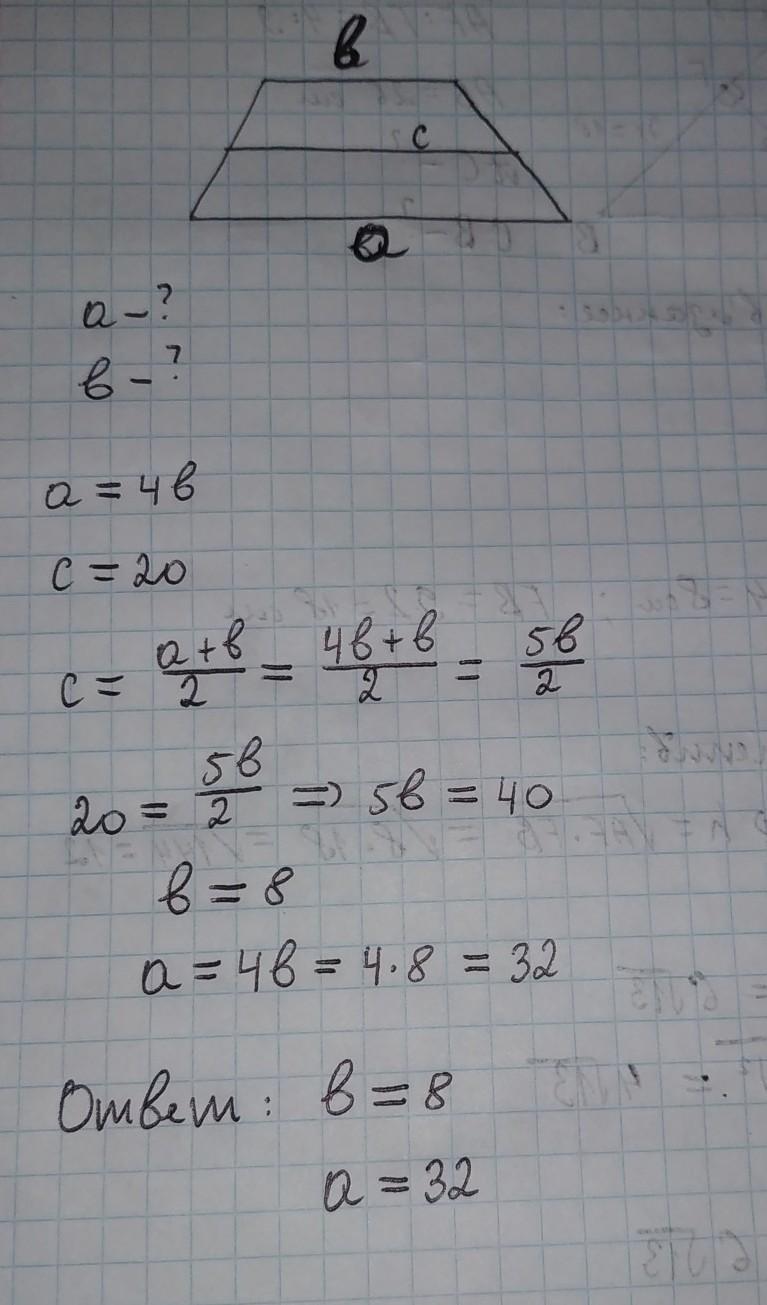 в
c
a
a - ?
в - ?
a = 4в
c = 20
c = a+в/2 = 4в+в/2 = 5в/2
20 = 5в/2 => 5в = 40
в = 8
a = 4в = 4·8 = 32
Ответ: в = 8
a = 32